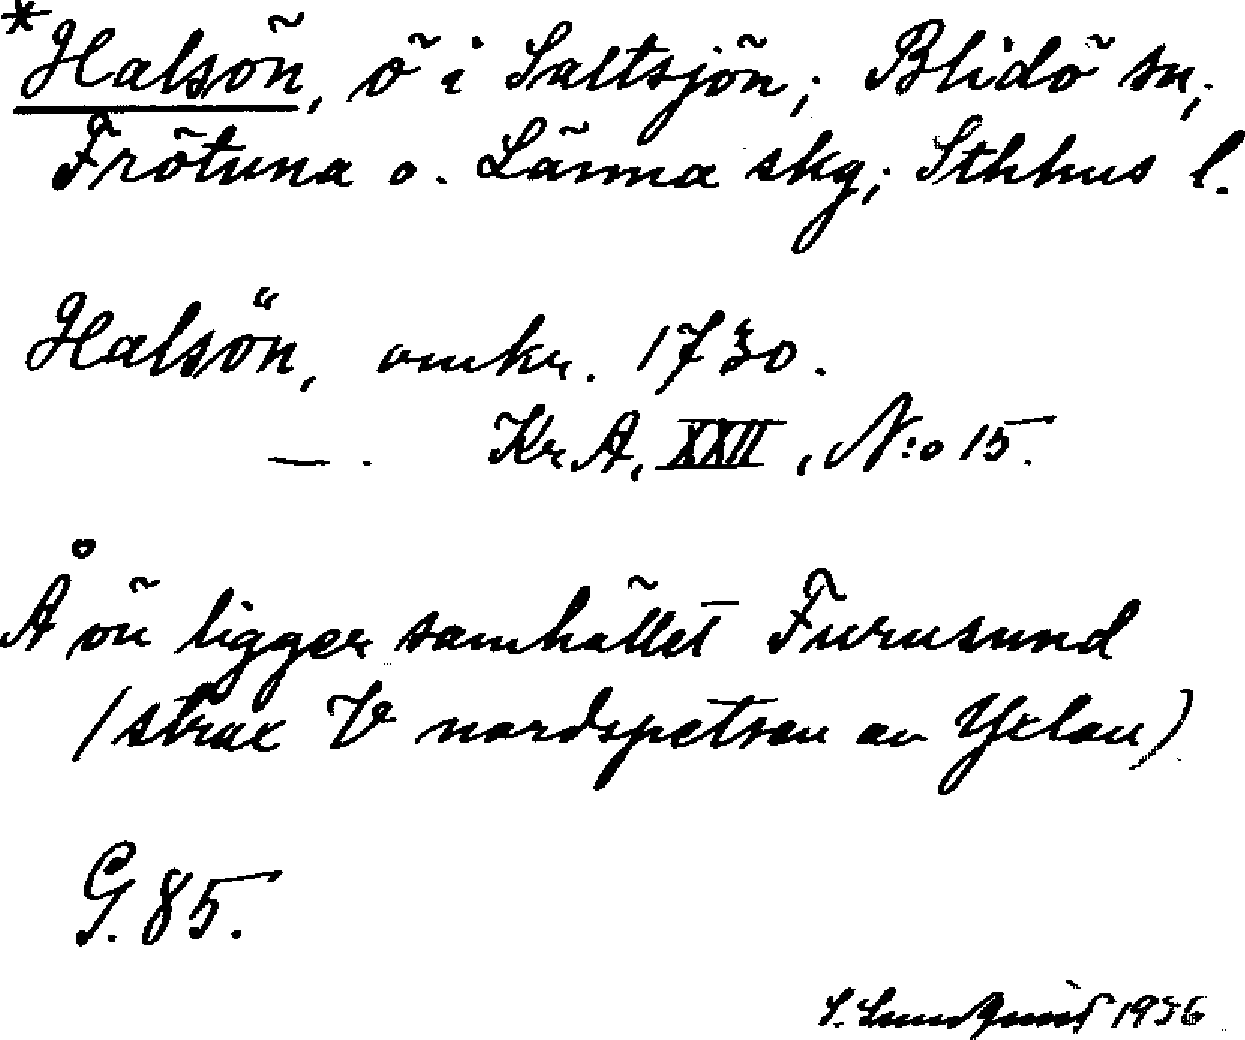 *Halsön, ö i Saltsjön; Blidö sn;
Frötuna o. Länna skg; Sthhus l.
Halsön, omkr. 1730.
—. Kr A, XXII, N:o 15.
Å ön ligger samhället Furusund
(strax V nordspetsen av Yxlan)
G. 85.
1936